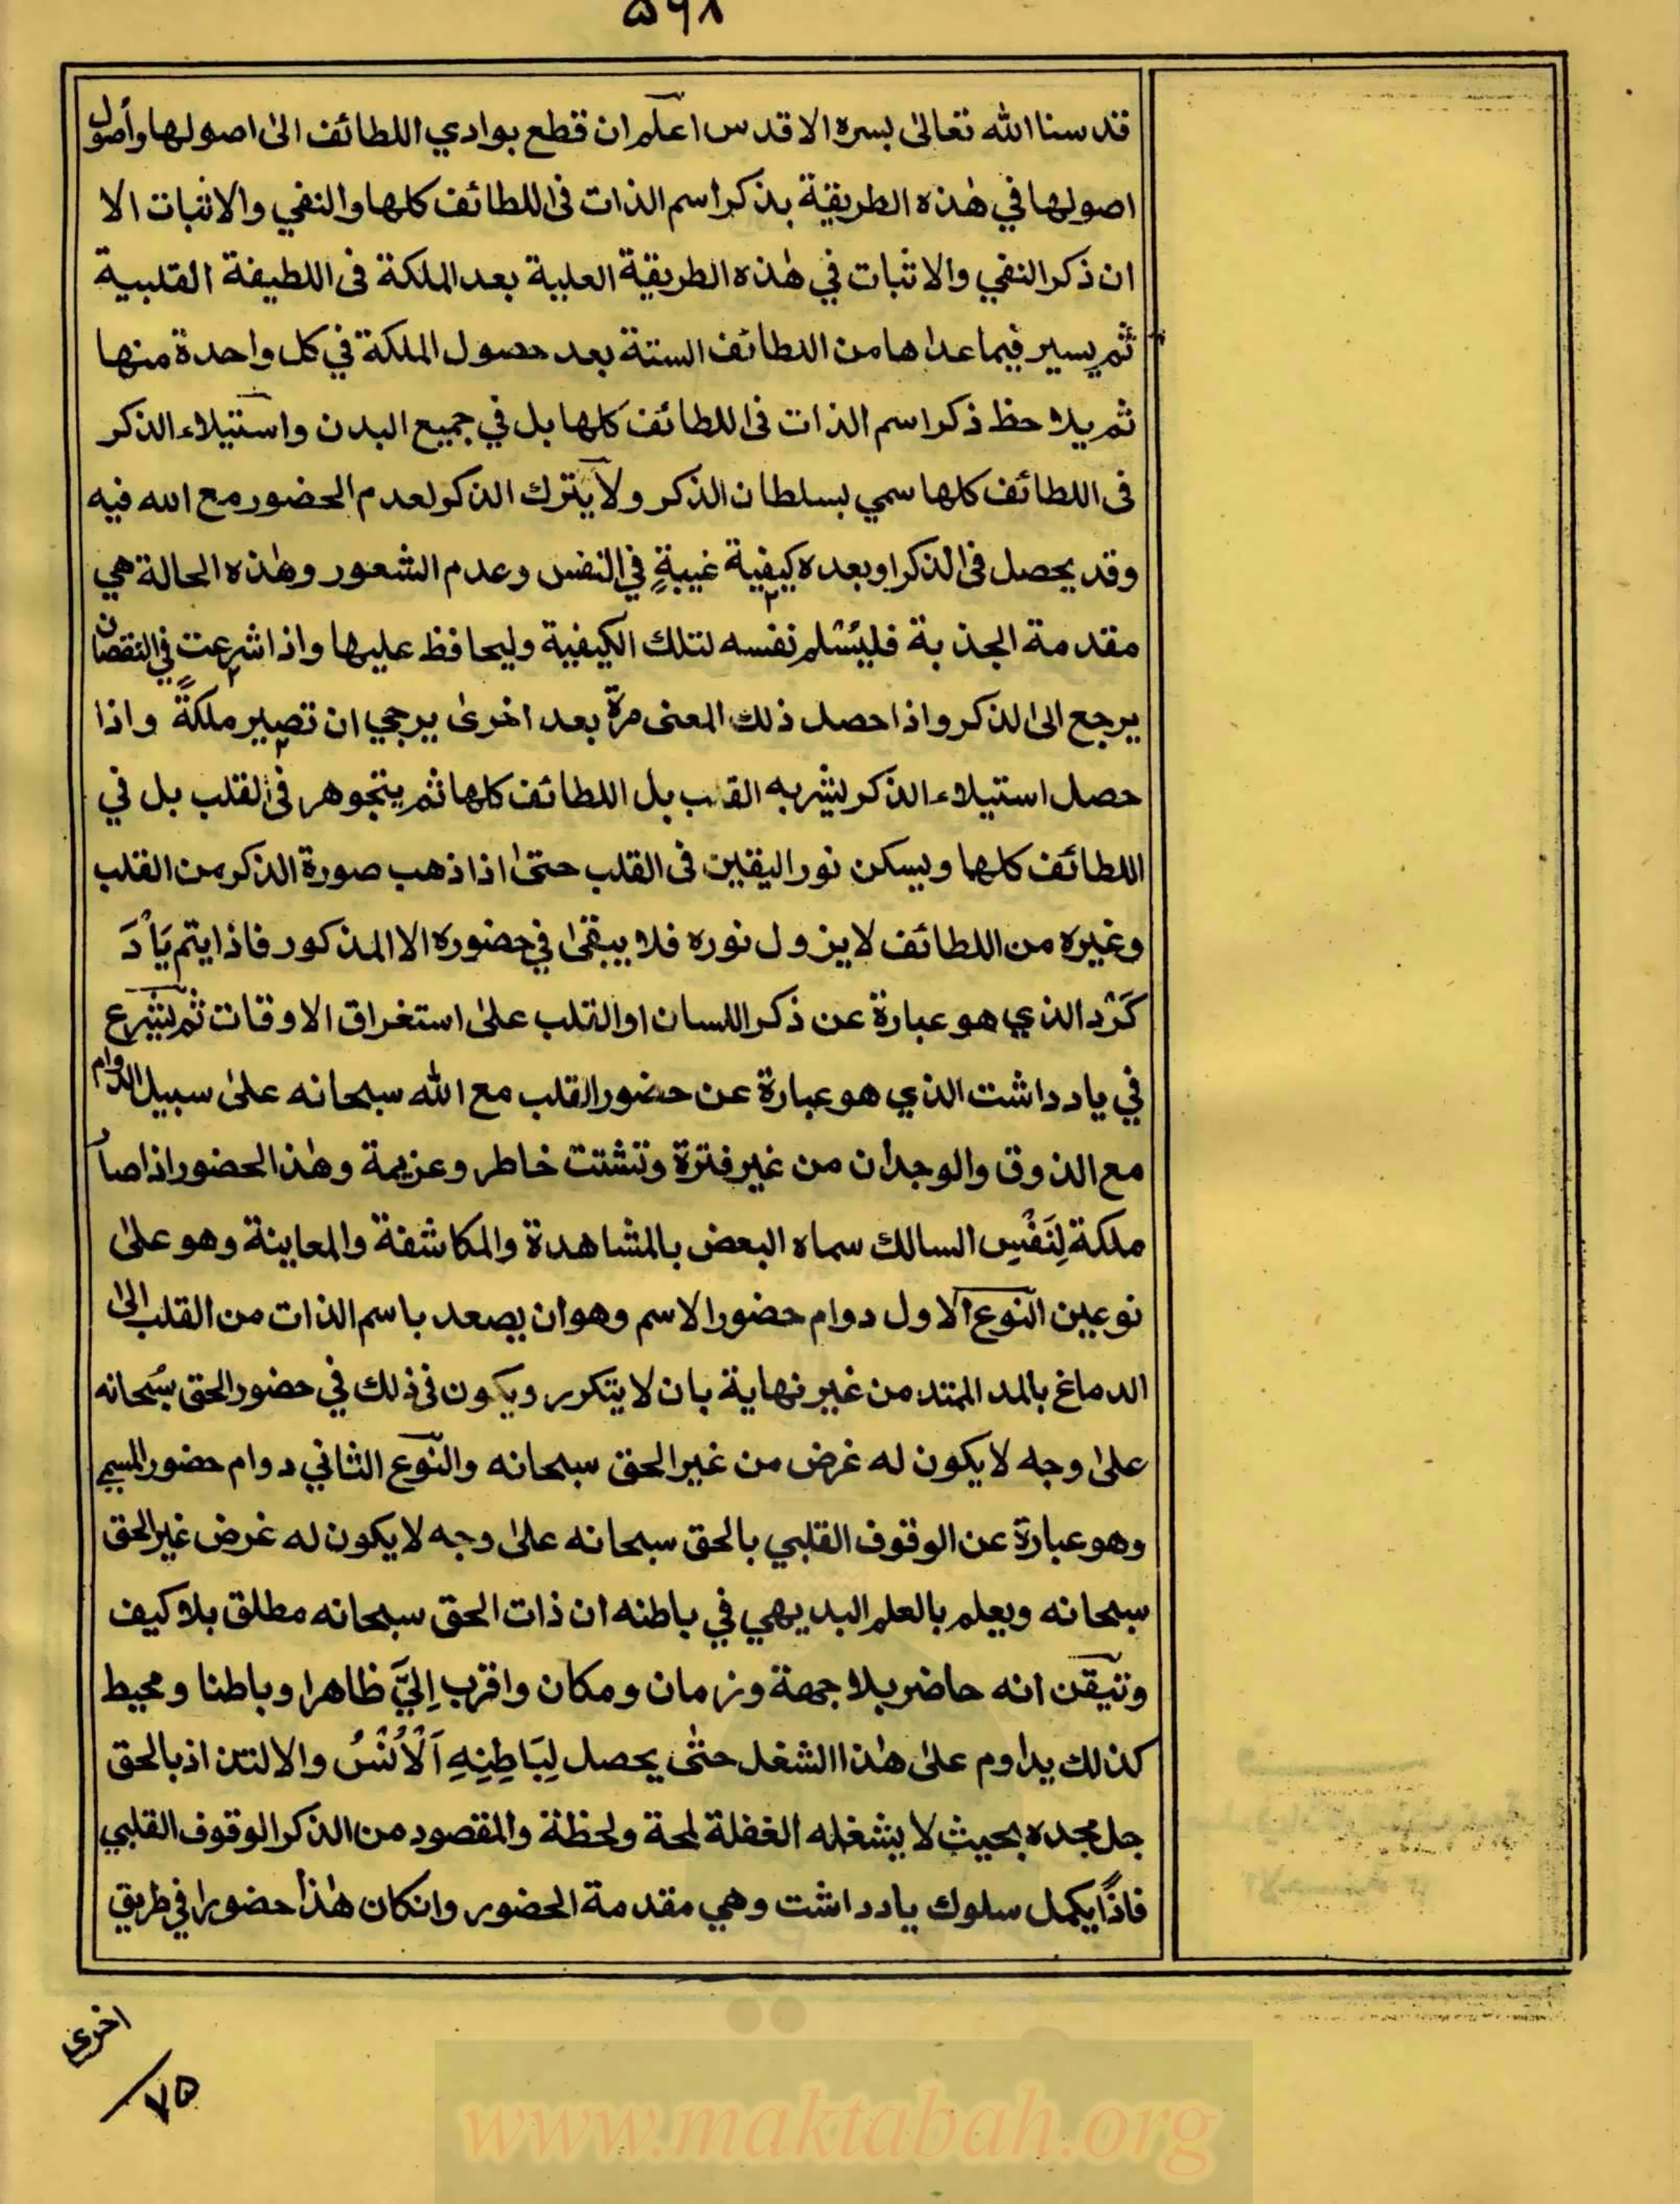 ۵۹۸
قدسنا الله تعالىٰ بسره الاقدس اعلم ان قطع بوادي اللطائف الىٰ اصولها واصول
اصولها في هٰذه الطريقة بذكر اسم الذات فى اللطائف كلها والنفي والاثبات الا
ان ذكر النفي والاثبات في هٰذه الطريقة العلية بعد الملكة فى اللطيفة القلبية
ثم يسير فيما عداها من اللطائف الستة بعد حصول الملكة في كل واحدة منها
ثم يلاحظ ذكر اسم الذات فى اللطائف كلها بل في جميع البدن واستيلاء الذكر
فى اللطائف كلها سمي بسلطان الذكر ولا يترك الذكر لعدم الحضور مع الله فيه
وقد يحصل فى الذكر او بعده كيفية غيبةٍ في النفس وعدم الشعور وهٰذه الحالة هي
مقدمة الجذبة فليسلم نفسه لتلك الكيفية وليحافظ عليها واذا شرعت في النقصان
يرجع الى الذكر واذا حصل ذلك المعنى مرة بعد اخرىٰ يرجي ان تصير ملكةً واذا
حصل استيلاء الذكر لشربه القلب بل اللطائف كلها ثم يتجوهر فى القلب بل في
اللطائف كلها ويسكن نور اليقين فى القلب حتىٰ اذا ذهب صورة الذكر من القلب
وغيره من اللطائف لا يزول نوره فلا يبقىٰ في حضوره الا المذكور فاذا يتم يَادَ
كَرْد الذي هو عبارة عن ذكر اللسان او القلب علىٰ استغراق الاوقات ثم يشرع
في ياد داشت الذي هو عبارة عن حضور القلب مع الله سبحانه علىٰ سبيل الدوام
مع الذوق والوجدان من غير فترة وتشتت خاطر وعزيمة وهٰذا الحضور اذا صار
ملكة لِنَفْسِ السالك سماه البعض بالمشاهدة والمكاشفة والمعاينة وهو علىٰ
نوعين النوع الاول دوام حضور الاسم وهو ان يصعد باسم الذات من القلب الىٰ
الدماغ بالمد الممتد من غير نهاية بان لا يتكرر ويكون فى ذلك في حضور الحق سُبحانه
علىٰ وجه لا يكون له غرض من غير الحق سبحانه والنوع الثاني دوام حضور المسمي
وهو عبارة عن الوقوف القلبي بالحق سبحانه علىٰ وجه لا يكون له غرض غير الحق
سبحانه ويعلم بالعلم البديهي في باطنه ان ذات الحق سبحانه مطلق بلا كيف
وتيقن انه حاضر بلا جهة وزمان ومكان واقرب اِليَّ ظاهرا وباطنا ومحيط
كذلك يداوم علىٰ هٰذا الشغل حتىٰ يحصل لِبَاطِنِهِ اَلْاُنْسُ والالتذاذ بالحق
جل مجده بحيث لا يشغله الغفلة لمحة ولحظة والمقصود من الذكر الوقوف القلبي
فاذًا يكمل سلوك يادداشت وهي مقدمة الحضور وانكان هٰذا حضورا في طريق
اخرى
۷۵
www.maktabah.org